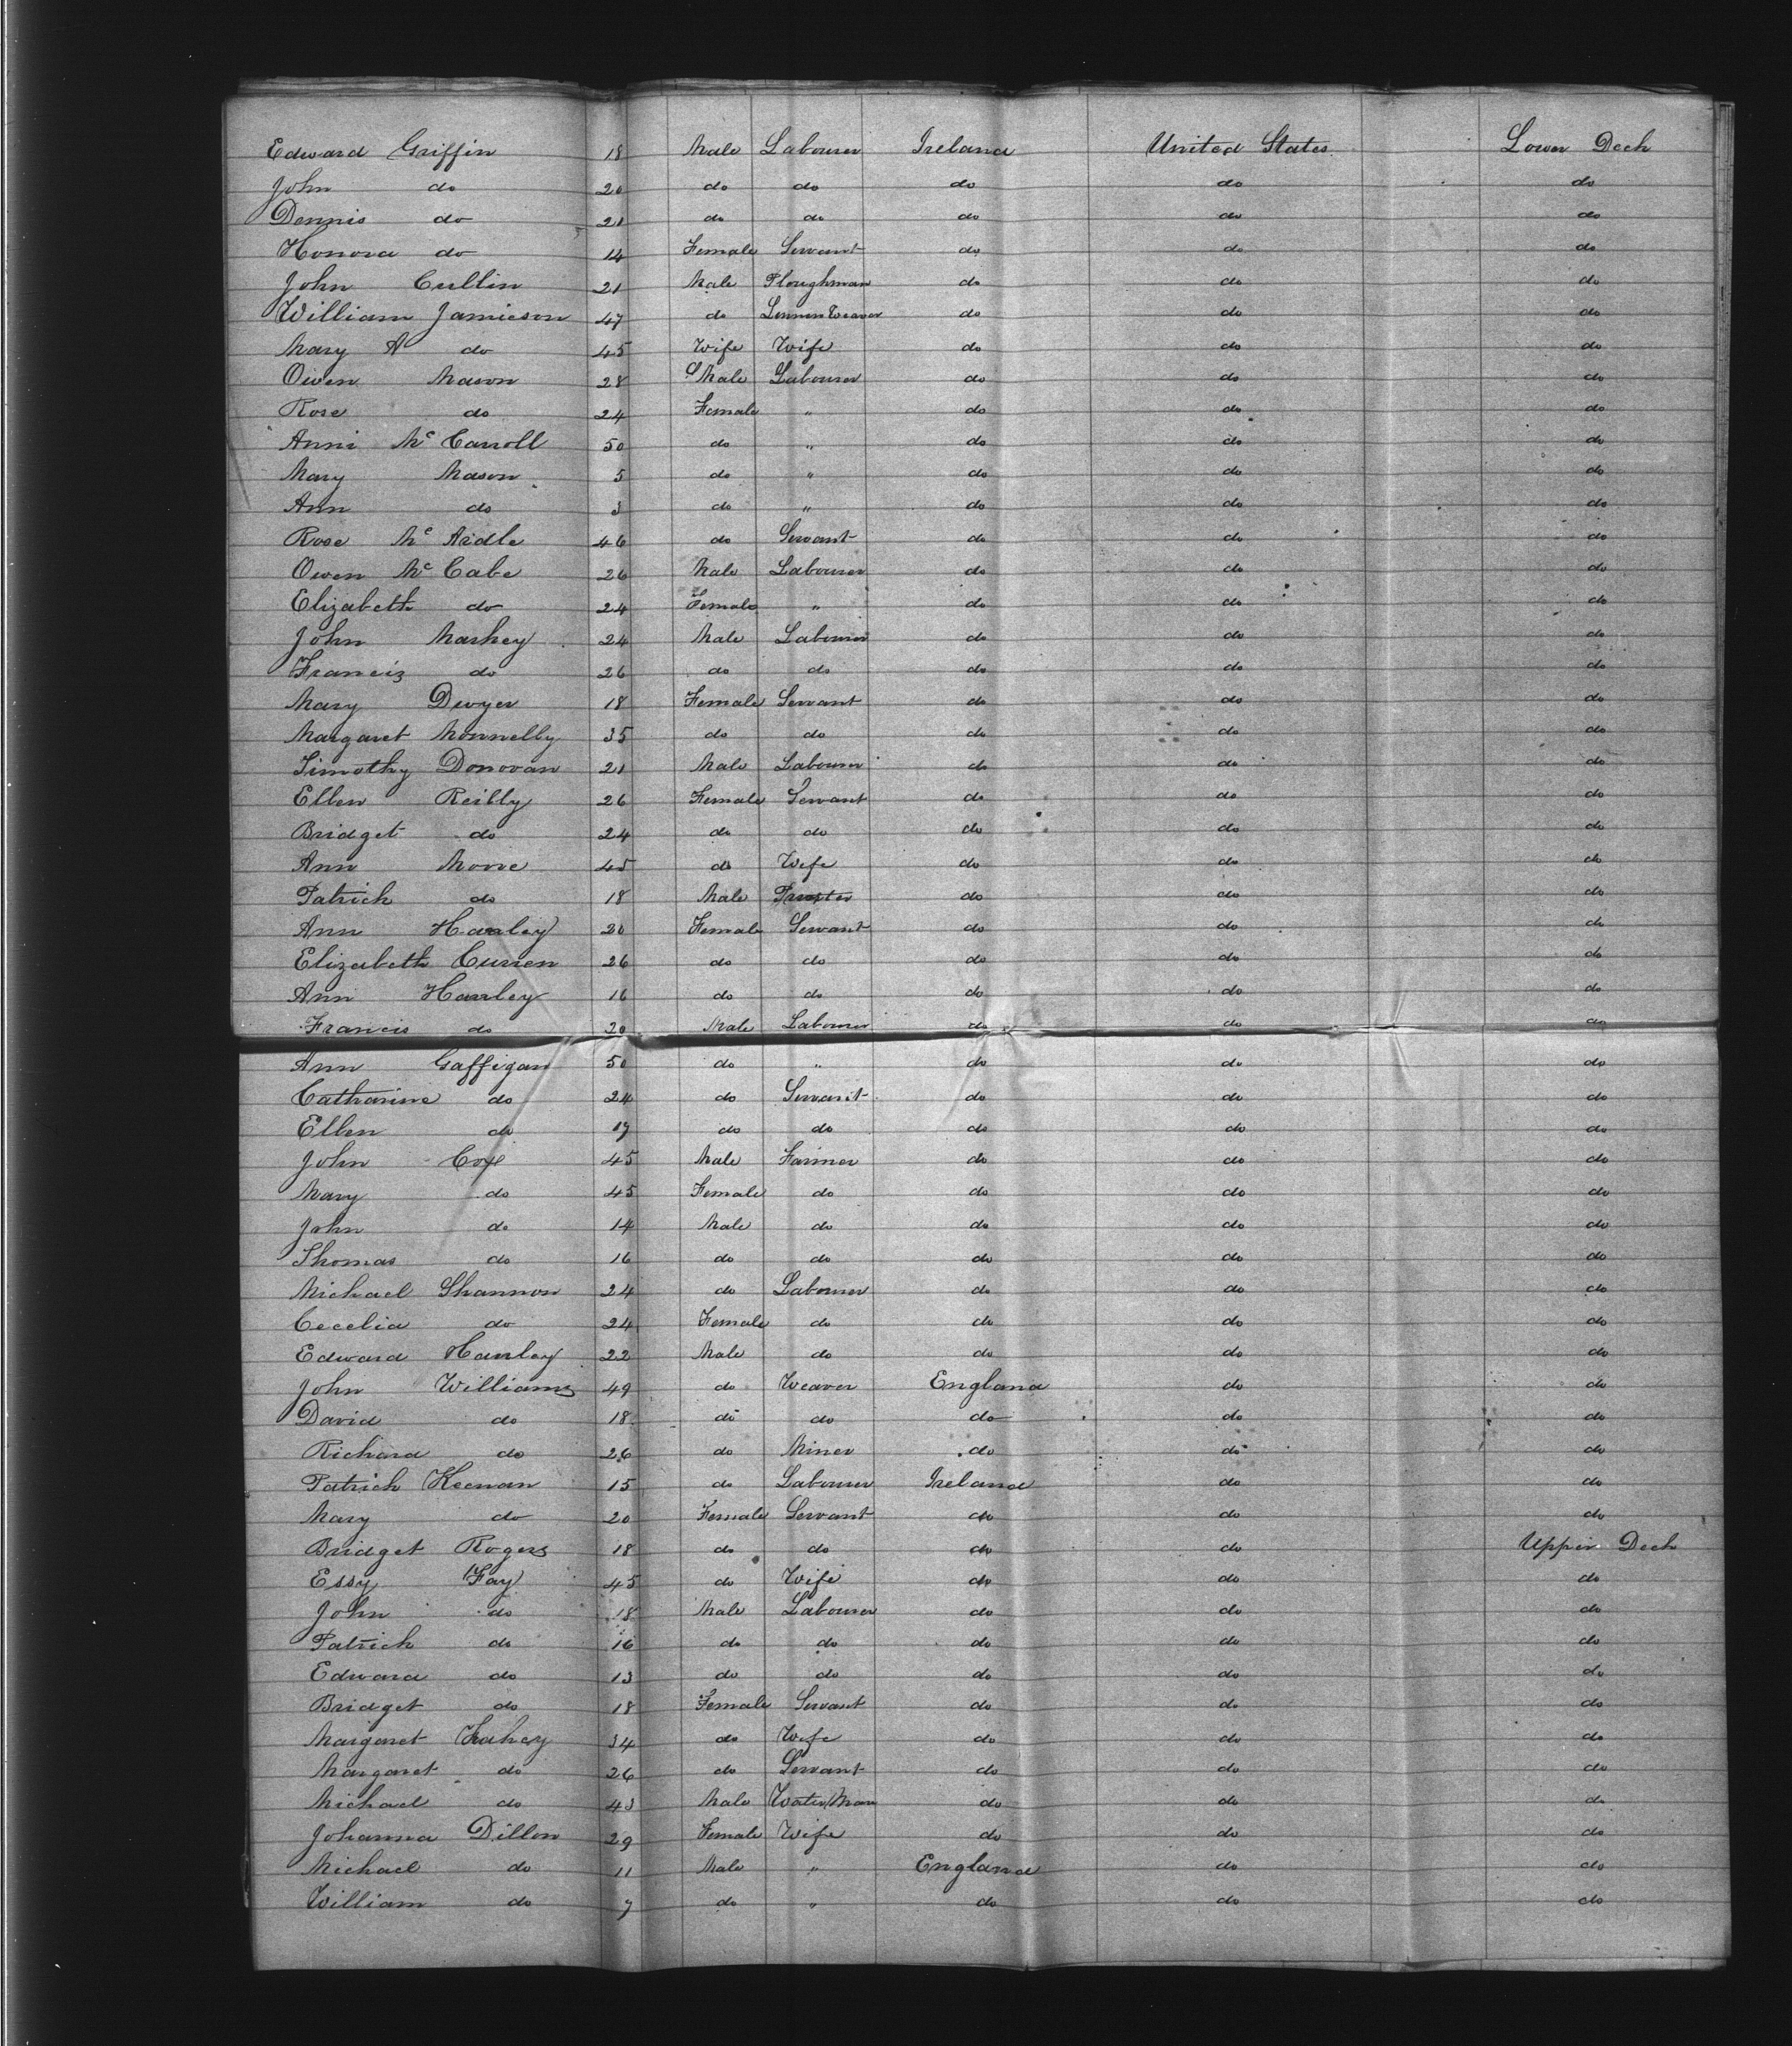 Edward Griffin 18 Male Labourer Ireland United States Lower Deck
John do 20 do do do do do
Dennis do 21 do do do do do
Honora do 14 Female Servant do do do
John Cullin 21 Male Ploughman do do do
William Jamieson 47 do Linnen Weaver do do do
Mary A do 45 Wife Wife do do do
Owen Mason 28 Male Labourer do do do
Rose do 24 Female " do do do
Anni Mc Carroll 50 do " do do do
Mary Mason 5 do " do do do
Ann do 3 do " do do do
Rose Mc Ardle 46 do Servant do do do
Owen Mc Cabe 26 Male Labourer do do do
Elizabeth do 24 Female " do do do
John Markey 24 Male Labourer do do do
Francis do 26 do do do do do
Mary Dwyer 18 Female Servant do do do
Margaret Monnelly 35 do do do do do
Timothy Donovan 21 Male Labourer do do do
Ellen Reilly 26 Female Servant do do do
Bridget do 24 do do do do do
Ann Moore 45 do Wife do do do
Patrick do 18 Male do do do
Ann Hanley 20 Female Servant do do do
Elizabeth Curren 26 do do do do do
Ann Hanley 16 do do do do do
Francis do 20 Male Labourer do do do
Ann Gaffigan 50 do " do do do
Catharine do 24 do Servant do do do
Ellen do 17 do do do do do
John Cox 45 Male Farmer do do do
Mary do 45 Female do do do do
John do 14 Male do do do do
Thomas do 16 do do do do do
Michael Shannon 24 do Labourer do do do
Cecelia do 24 Female do do do do
Edward Hanley 22 Male do do do do
John Williams 49 do Weaver England do do
David do 18 do do do do do
Richard do 26 do Miner do do do
Patrick Keenan 15 do Labourer Ireland do do
Mary do 20 Female Servant do do do
Bridget Rogers 18 do do do do Upper Deck
Essy Fay 45 do Wife do do do
John do 18 Male Labourer do do do
Patrick do 16 do do do do do
Edward do 13 do do do do do
Bridget do 18 Female Servant do do do
Margaret Fahey 34 do Wife do do do
Margaret do 26 do Servant do do do
Michael do 43 Male Water Man do do do
Johanna Dillon 29 Female Wife do do do
Michael do 11 Male " England do do
William do 7 do " do do do